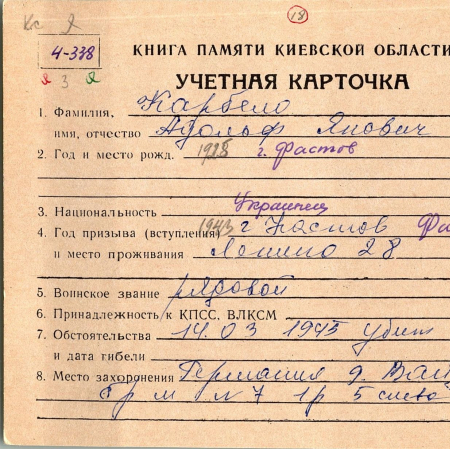 18
4-338
3
КНИГА ПАМЯТИ КИЕВСКОЙ ОБЛАСТИ
УЧЕТНАЯ КАРТОЧКА
1. Фамилия, Карбело
имя, отчество Адольф Янович
2. Год и место рожд. 1925 г. Фастов
3. Национальность Украинец
4. Год призыва (вступления) 1943 г Фастов Фа
и место проживания Ленина 28
5. Воинское звание рядовой
6. Принадлежность к КПСС, ВЛКСМ
7. Обстоятельства 14.03 1945 убит
и дата гибели
8. Место захоронения Германия д.
гр м N 7 1р 5 слева